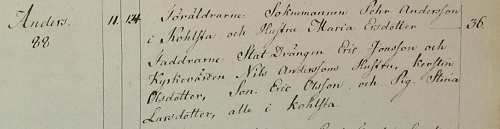 Anders. 11. 124. Föräldrarne Soknemannen Pehr Andersson 36.
88 i Kohlsta och Hustru Maria Ersdotter
Faddrarne Stat Drängen Eric Jonsson och
Kyrkevärden Nils Anderssons Hustru, Kerstin
Olsdotter, Son. Eric Olsson och Pig. Stina
Larsdotter, alle i Kohlsta.